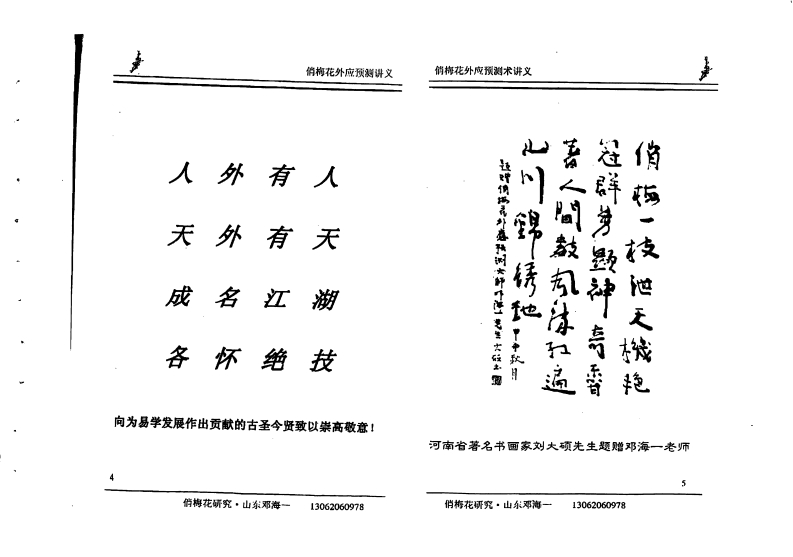 俏梅花外应预测讲义
人外有人
天外有天
成名江湖
各怀绝技
向为易学发展作出贡献的古圣今贤致以崇高敬意！
4
俏梅花研究·山东邓海一 13062060978
俏梅花外应预测术讲义
俏梅一枝泄天機艳
冠群芳顯神奇香
人間
川錦绣地甲申秋月
河南省著名书画家刘大硕先生题赠邓海一老师
5
俏梅花研究·山东邓海一 13062060978